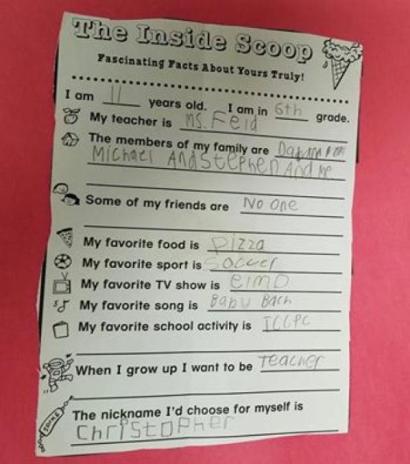 The Inside Scoop
Fascinating Facts About Yours Truly!
I am 11 years old. I am in 6th grade.
My teacher is Ms. Feld
The members of my family are
Michael And Stephen And me
Some of my friends are No one
My favorite food is pizza
My favorite sport is soccer
My favorite TV show is elmo
My favorite song is Baby Bach
My favorite school activity is
When I grow up I want to be Teacher
The nickname I'd choose for myself is
Christopher